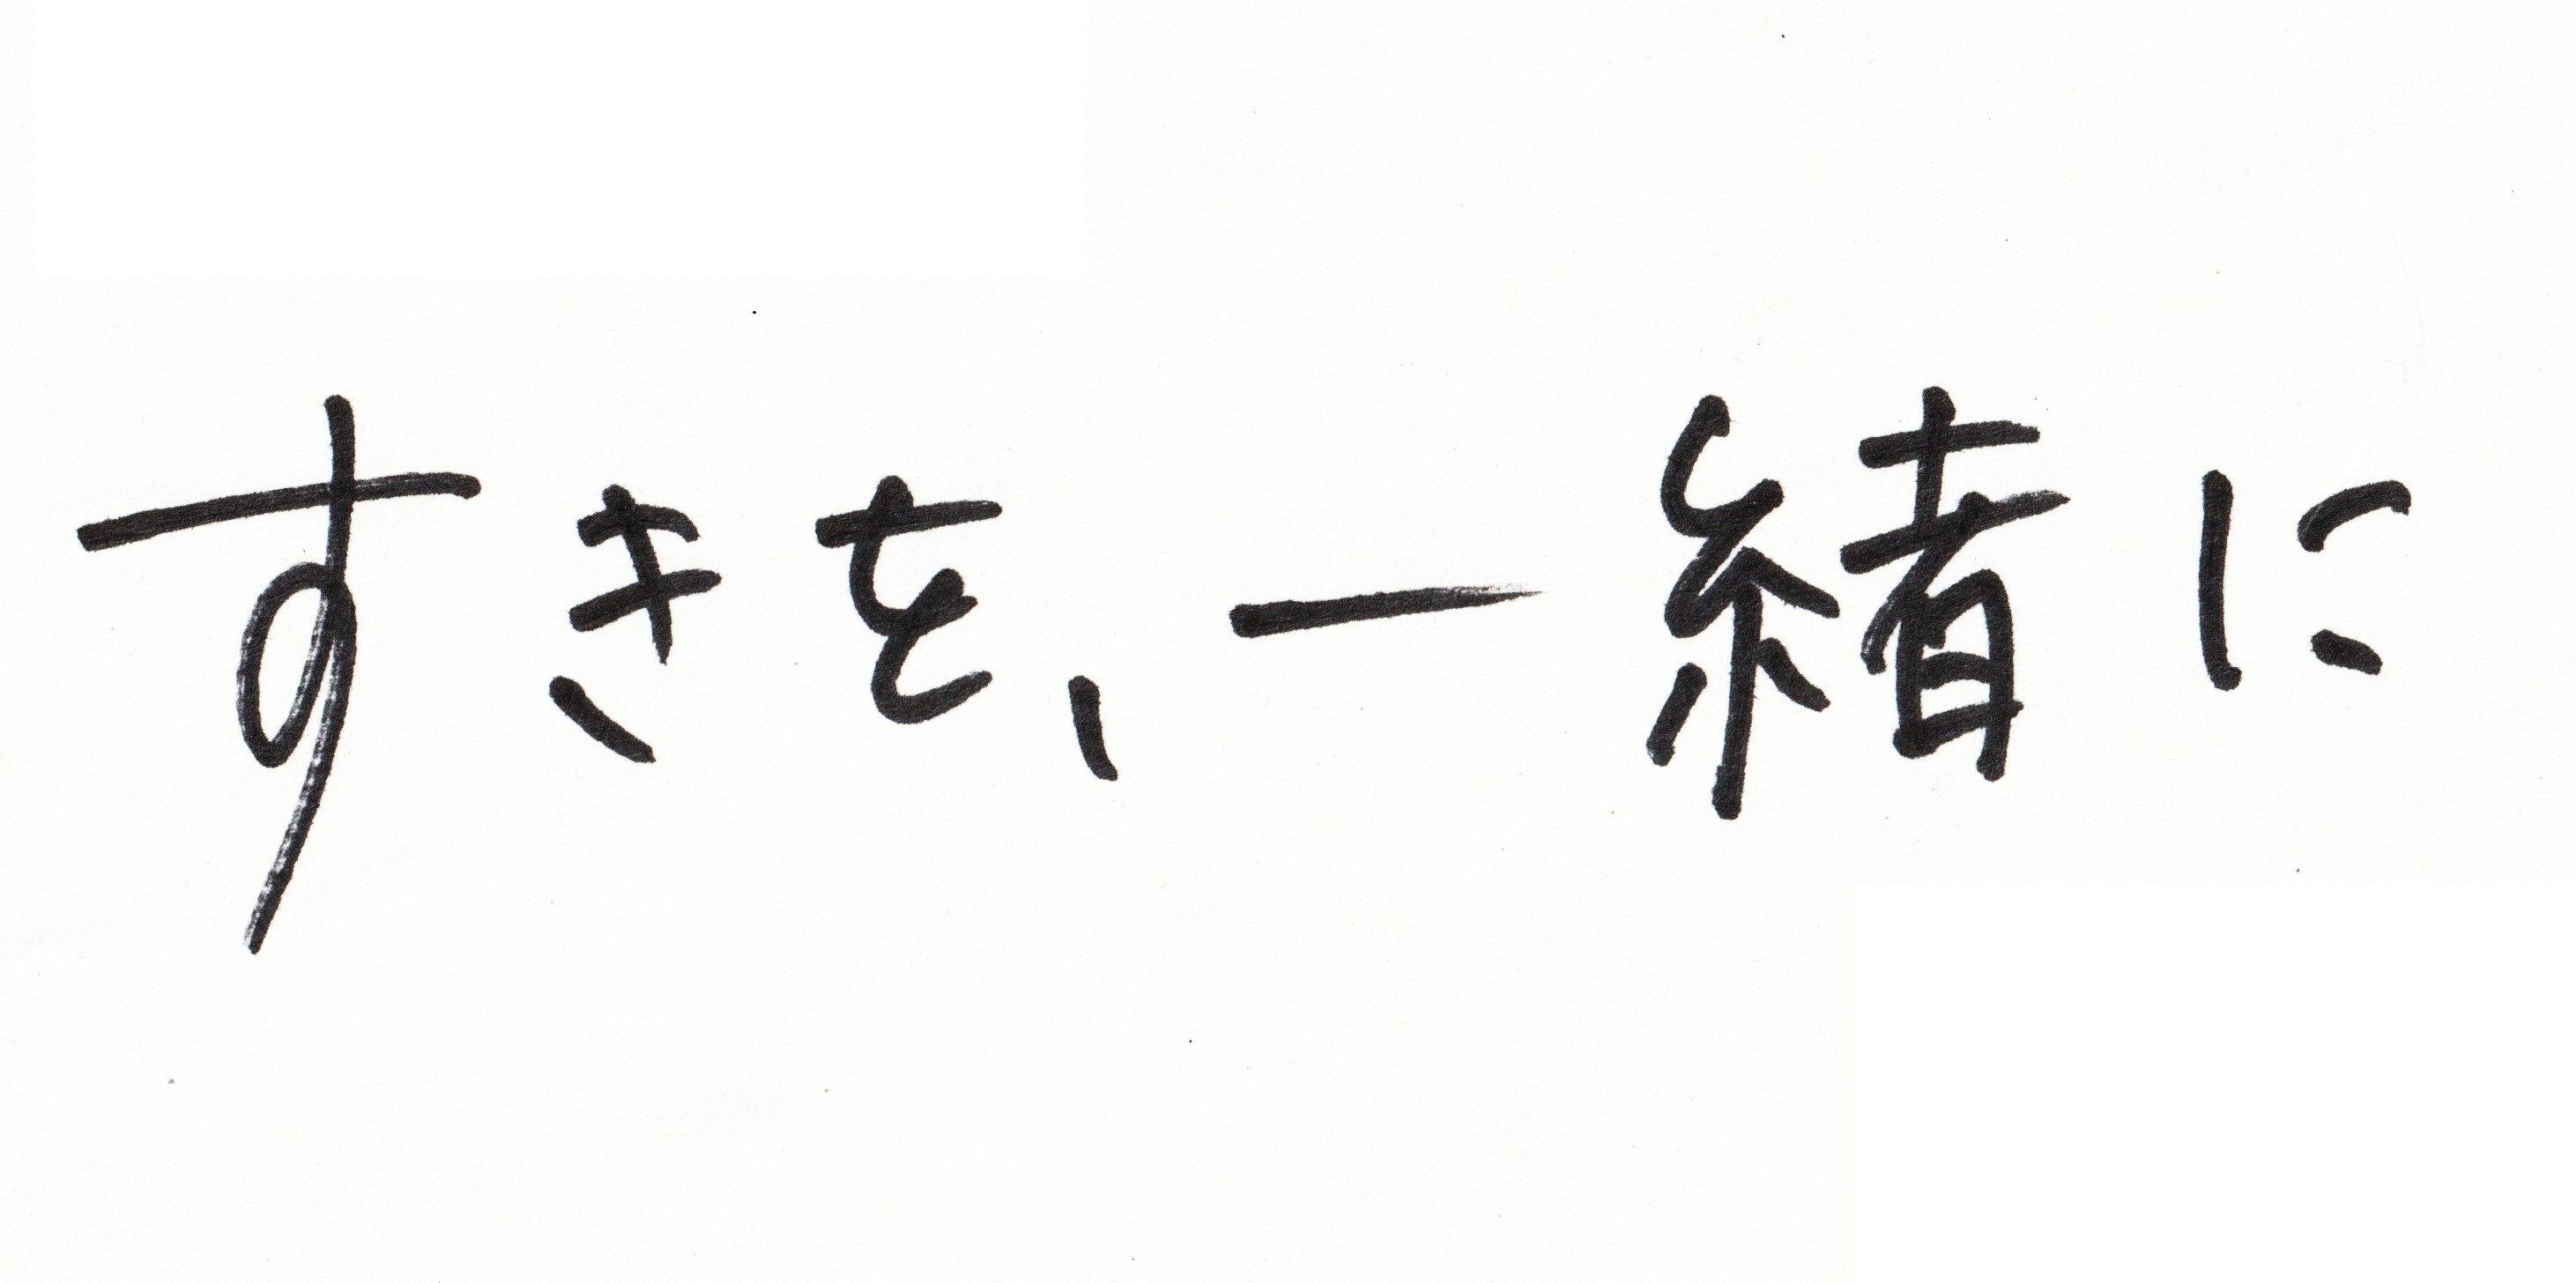 すきを、一緒に